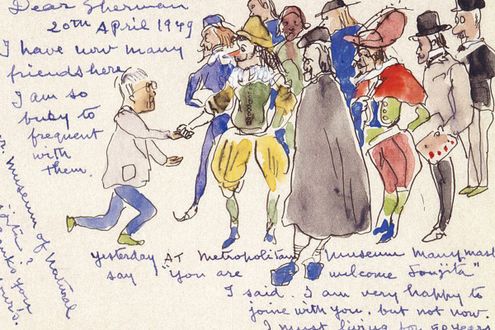 Dear Sherman
20th April 1949
I have now many
friends here
I am so
busy to
frequent
with
them.
yesterday AT Metropolitan Museum many mast
say "you are welcome Soujita"
I said. I am very happy to
joine with you. but not now.
I must living you 50 years
museum of Natural